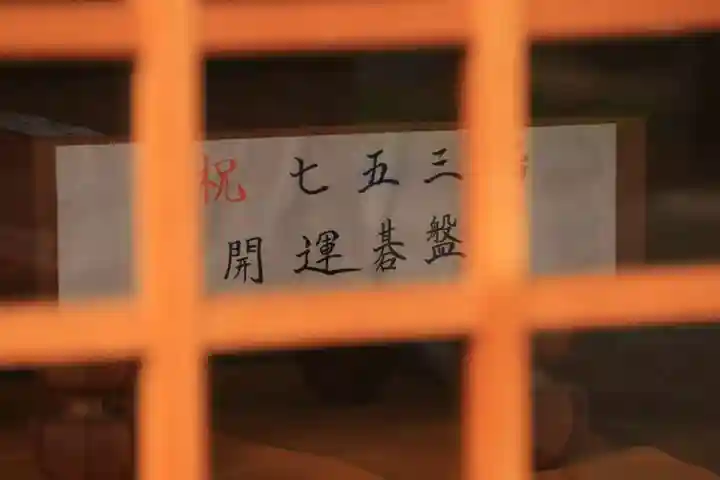 祝 七五三
開運碁盤